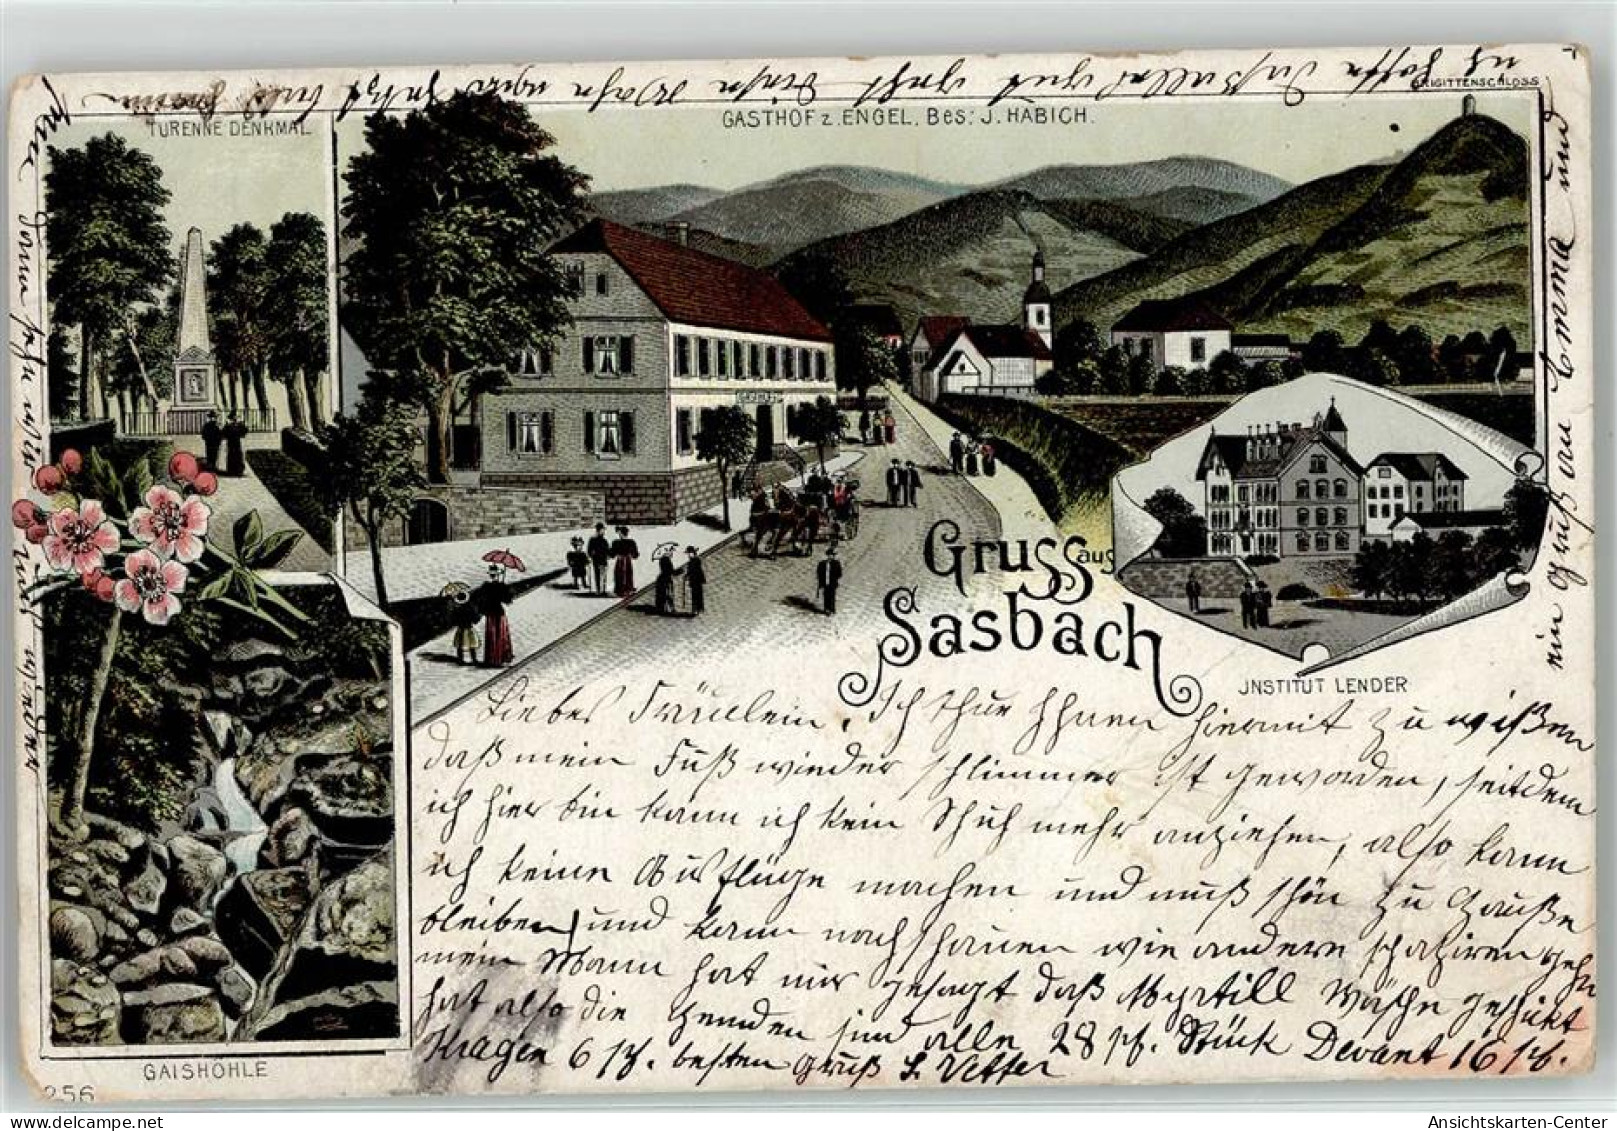 TURENNE DENKMAL
GASTHOF z. ENGEL. BES: J. HABICH.
BRIGITTENSCHLOSS
Gruss aus
Sasbach
JNSTITUT LENDER
GAISHÖHLE
256
Liebes Fräulein. Ich thue Ihnen hiermit zu wißen
daß mein Fuß wieder schlimmer ist geworden, seitdem
ich hier bin kann ich kein Schuh mehr anziehen, also kann
ich keine Ausflüge machen und muß schön zu Hauße
bleiben, und kann nachschauen wie andere spaziren gehn
mein Mann hat mir gesagt daß Myrtill Wäsche geschickt
hat also die Hemden sind alle 28 pf. Stück Devant 16 pf.
Kragen 6 pf. besten Gruß L. Vetter
ein Gruß an Emma und
ich hoffe daß alles gut geht
Ansichtskarten-Center